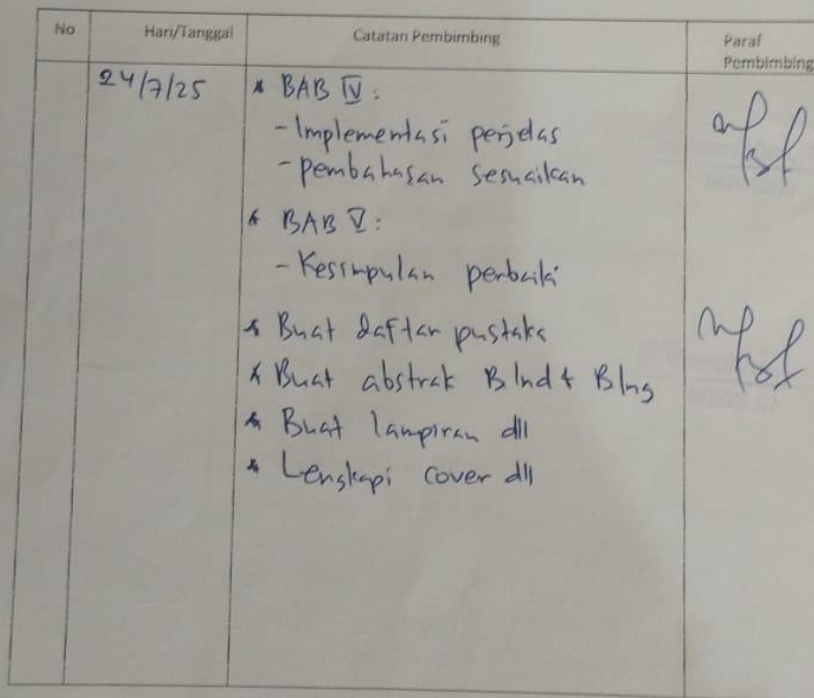 No Hari/Tanggal Catatan Pembimbing Paraf Pembimbing
24/7/25 * BAB IV:
- Implementasi perjelas
- pembahasan sesuaikan
* BAB V:
- Kesimpulan perbaiki
* Buat daftar pustaka
* Buat abstrak B Ind + B Ing
* Buat lampiran dll
* Lengkapi cover dll